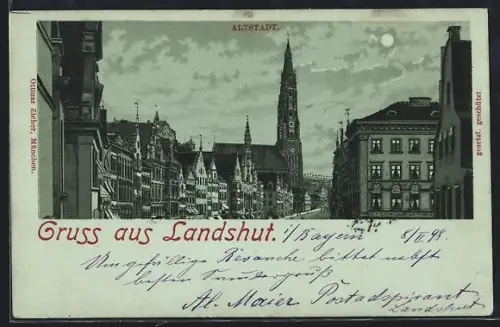 ALTSTADT.
Ottmar Zieher, München.
gesetzl. geschützt
Gruss aus Landshut. i/Bayern 8/II 98.
Um gefällige Revanche bittet nebst
besten Sundergruß
Al. Maier Postadspirant
Landshut